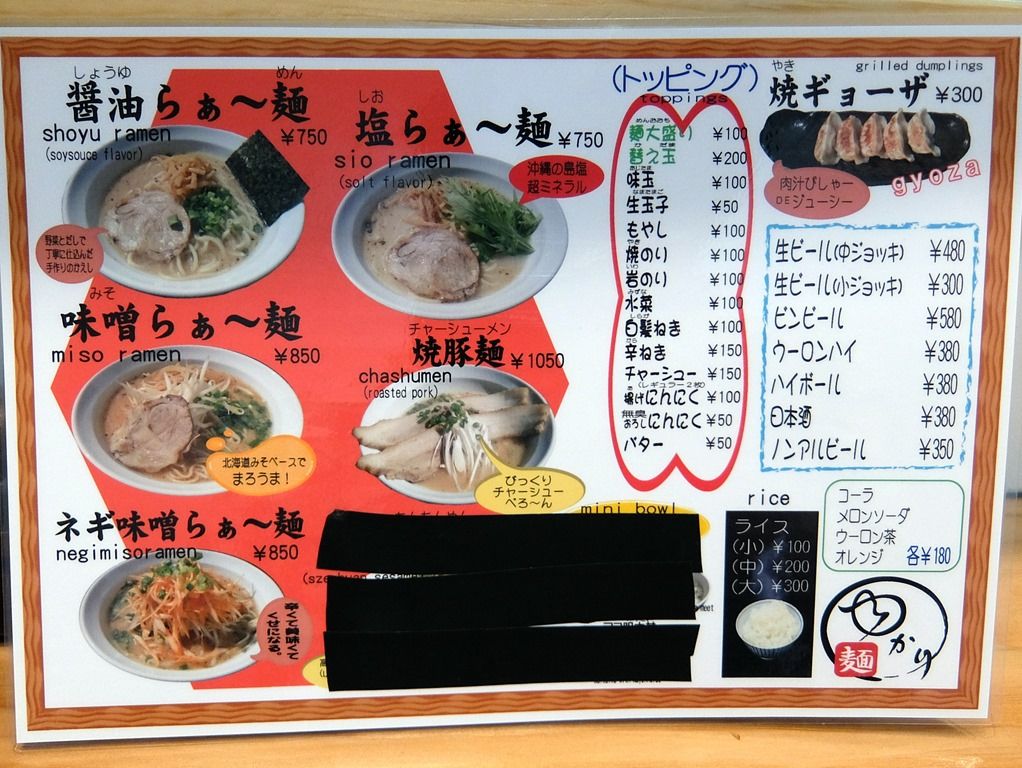 しょうゆ めん
醤油らぁ〜麺
shoyu ramen ¥750
(soysouce flavor)
野菜とだしで
丁寧に仕込んだ
手作りのかえし
しお
塩らぁ〜麺 ¥750
sio ramen
(solt flavor)
沖縄の島塩
超ミネラル
みそ
味噌らぁ〜麺
miso ramen ¥850
北海道みそベースで
まろうま！
チャーシューメン
焼豚麺 ¥1050
chashumen
(roasted pork)
びっくり
チャーシュー
べろ〜ん
ネギ味噌らぁ〜麺
negimisoramen ¥850
辛くて興味くて
くせになる。
mini bowl
(トッピング)
toppings
めんおおもり
麺大盛り ¥100
替え玉 ¥200
味玉 ¥100
なまたまご
生玉子 ¥50
もやし ¥100
やき
焼のり ¥100
いわ
岩のり ¥100
みずな
水菜 ¥100
しらが
白髪ねぎ ¥100
から
辛ねぎ ¥150
チャーシュー ¥150
(レギュラー2枚)
揚げにんにく ¥100
無臭
おろしにんにく ¥50
バター ¥50
やき grilled dumplings
焼ギョーザ ¥300
gyoza
肉汁ぴしゃー
DEジューシー
生ビール(中ジョッキ) ¥480
生ビール(小ジョッキ) ¥300
ビンビール ¥580
ウーロンハイ ¥380
ハイボール ¥380
日本酒 ¥380
ノンアルビール ¥350
rice
ライス
(小)¥100
(中)¥200
(大)¥300
コーラ
メロンソーダ
ウーロン茶
オレンジ 各¥180
麺